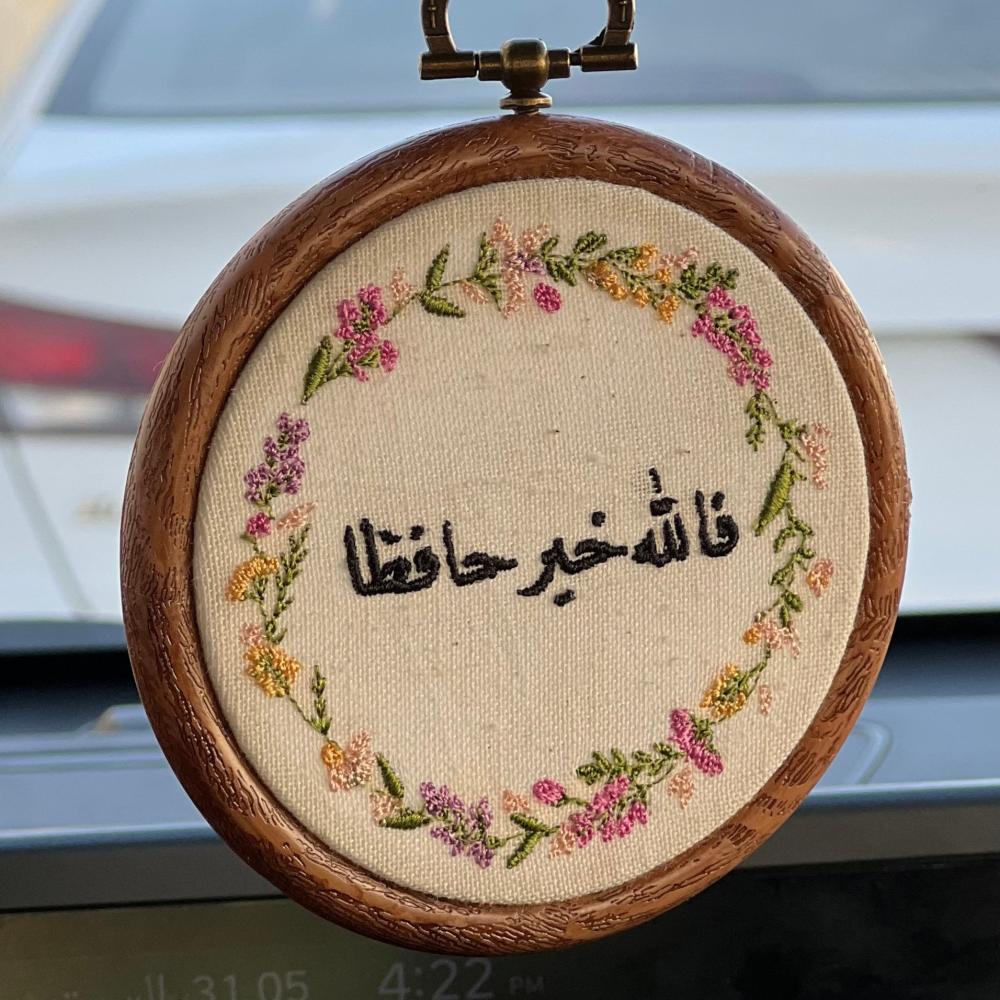 فالله خير حافظا
31.05
4:22 PM